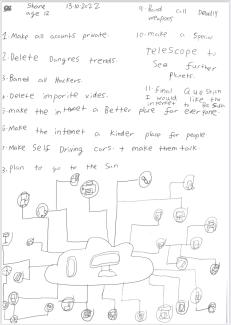 Shane 13.10.2022
age 12
1. Make all accounts private.
2. Delete Dangres trends
3. Baned all Hackers.
4. Delete imporite vides.
5. make the internet a Better place for everyone.
6. Make the internet a kinder place for people
7. Make Self Driving cars. + make them talk
8. Plan to go to the Sun
9. Band all Deadly
weapons
10. make a Special
telescope to
See further
Planets.
11. final Question
I would like the
internet to be